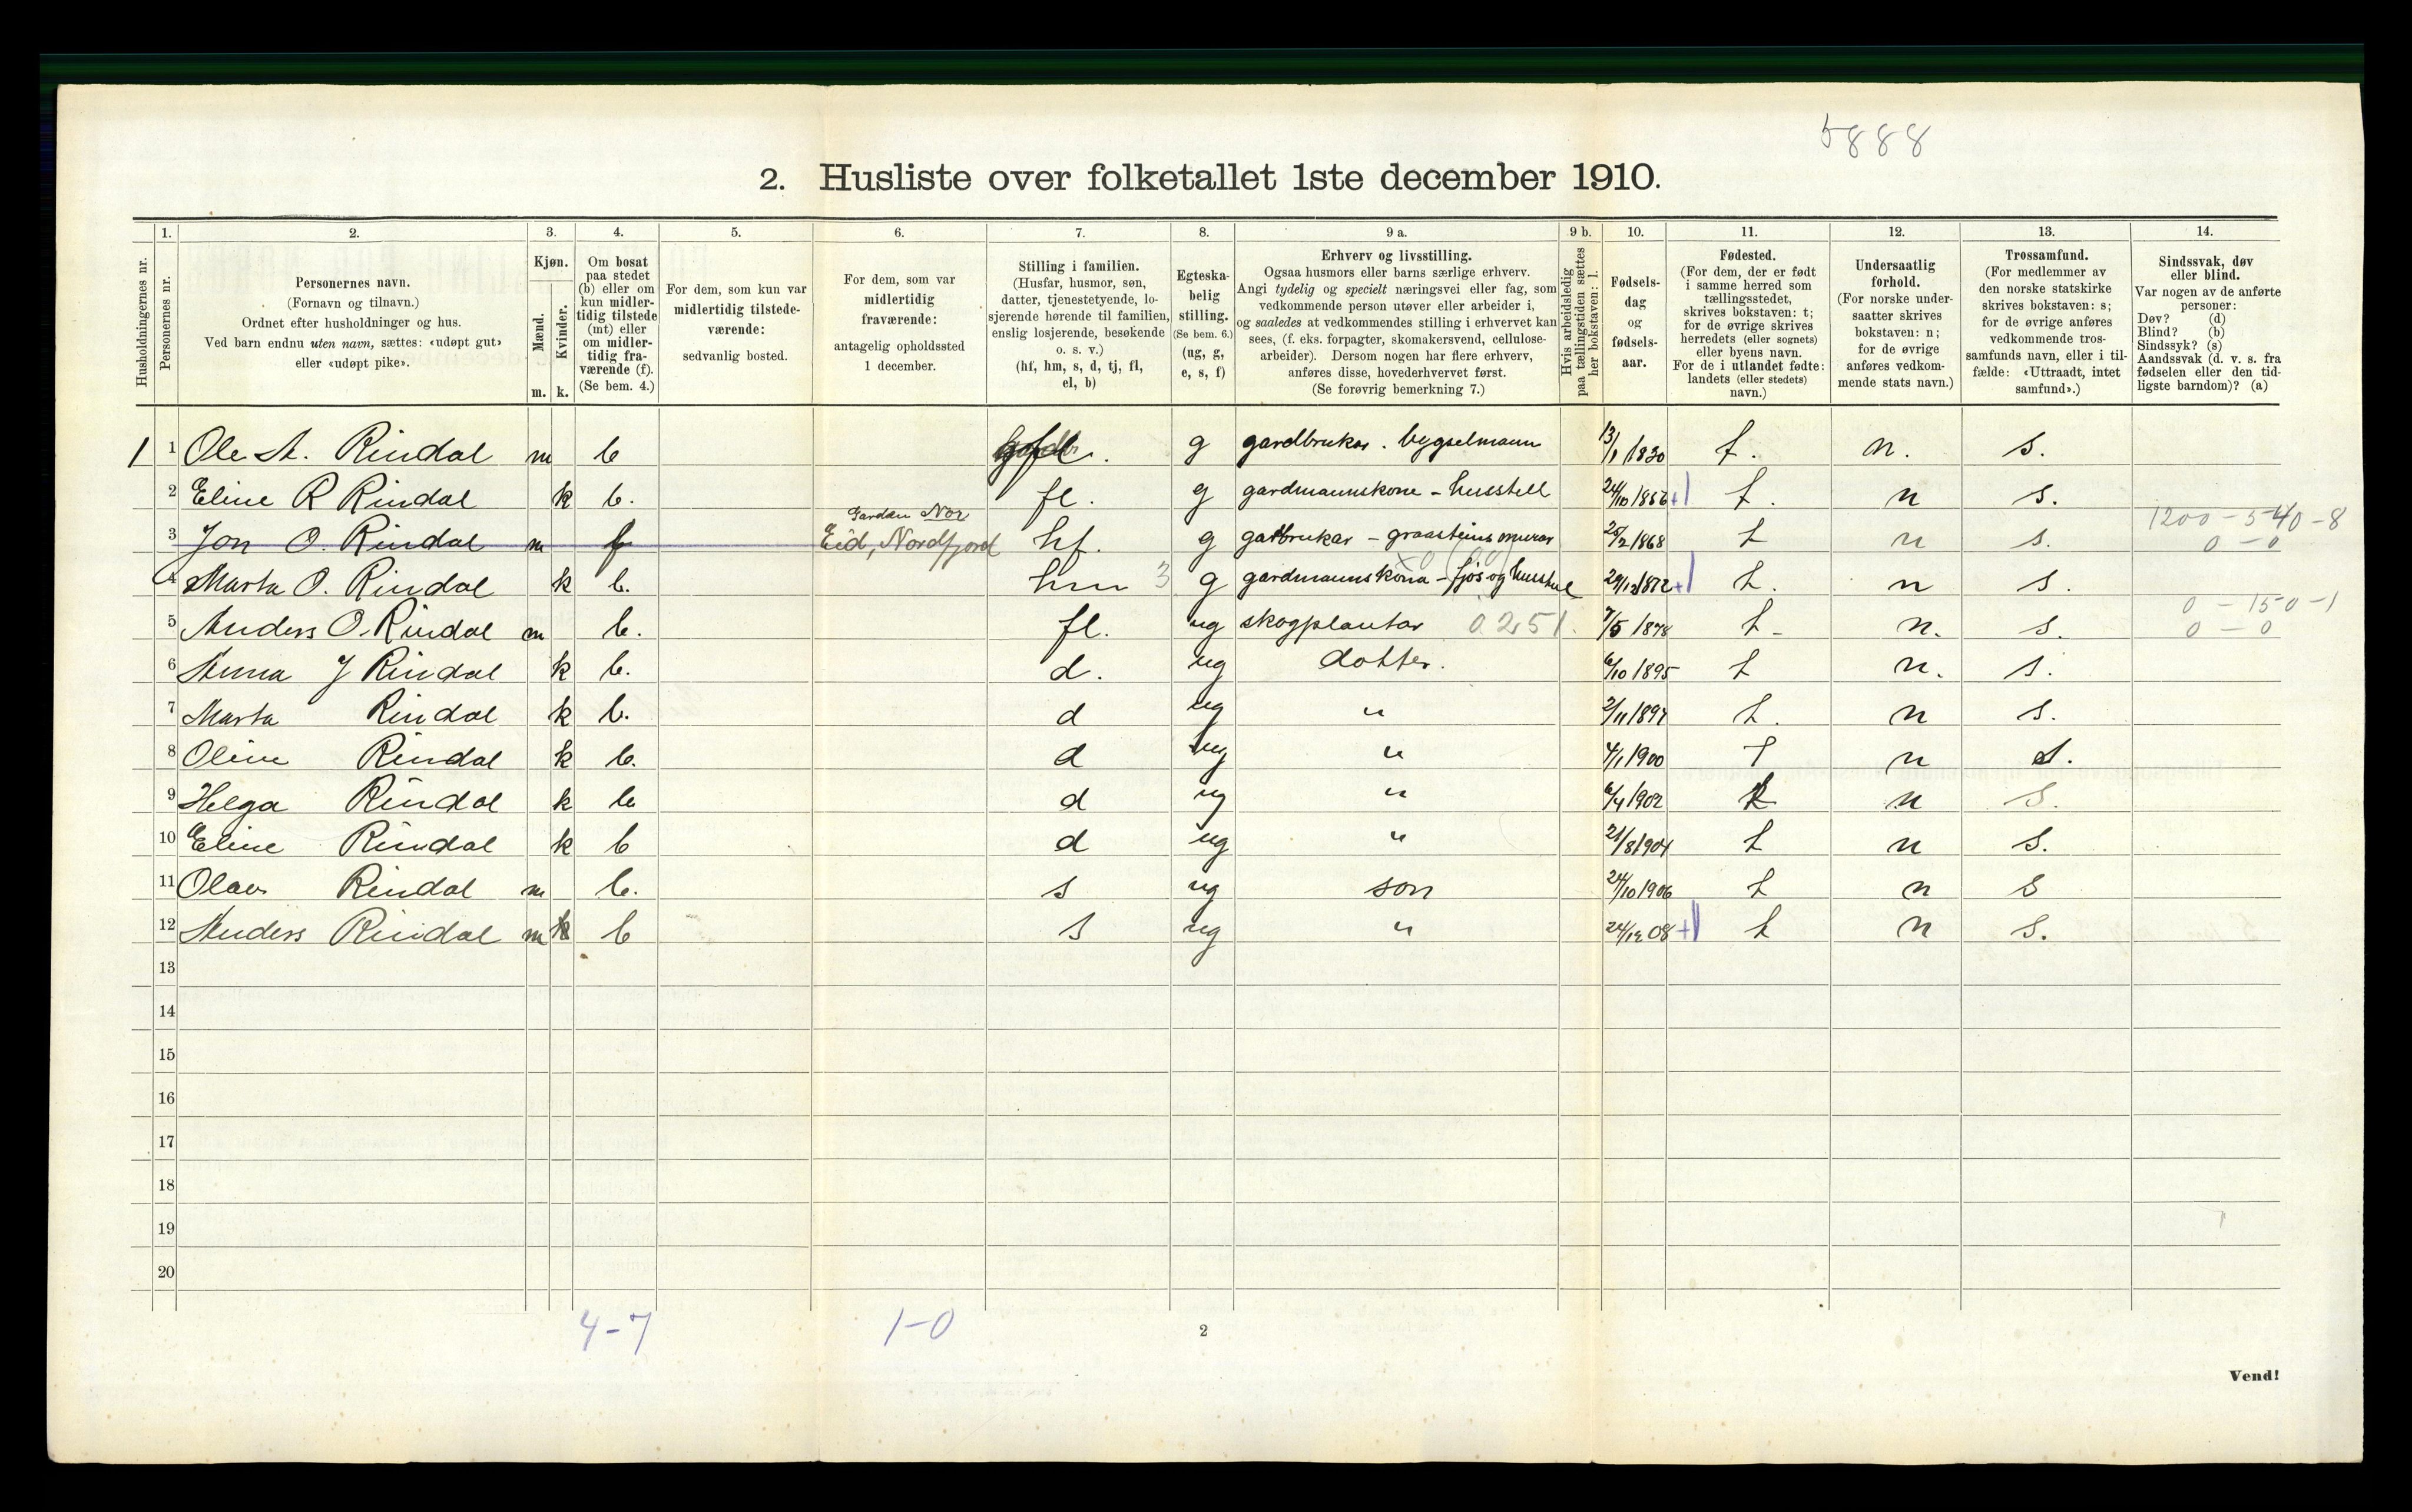 5888
2. Husliste over folketallet 1ste december 1910.
Husholdningernes nr.
1.
Personernes nr.
2.
Personernes navn.
(Fornavn og tilnavn.)
Ordnet efter husholdninger og hus.
Ved barn endnu uten navn, sættes: «udøpt gut»
eller «udøpt pike».
3.
Kjøn.
Mænd.
Kvinder.
m. k.
4.
Om bosat
paa stedet
(b) eller om
kun midler-
tidig tilstede
(mt) eller
om midler-
tidig fra-
værende (f).
(Se bem. 4.)
5.
For dem, som kun var
midlertidig tilstede-
værende:
sedvanlig bosted.
6.
For dem, som var
midlertidig
fraværende:
antagelig opholdssted
1 december.
7.
Stilling i familien.
(Husfar, husmor, søn,
datter, tjenestetyende, lo-
sjerende hørende til familien,
enslig losjerende, besøkende
o. s. v.)
(hf, hm, s, d, tj, fl,
el, b)
8.
Egteska-
belig
stilling.
(Se bem. 6.)
(ug, g,
e, s, f)
9 a.
Erhverv og livsstilling.
Ogsaa husmors eller barns særlige erhverv.
Angi tydelig og specielt næringsvei eller fag, som
vedkommende person utøver eller arbeider i,
og saaledes at vedkommendes stilling i erhvervet kan
sees, (f. eks. forpagter, skomakersvend, cellulose-
arbeider). Dersom nogen har flere erhverv,
anføres disse, hovederhvervet først.
(Se forøvrig bemerkning 7.)
9 b.
Hvis arbeidsledig
paa tællingstiden sættes
her bokstaven: l.
10.
Fødsels-
dag
og
fødsels-
aar.
11.
Fødested.
(For dem, der er født
i samme herred som
tællingsstedet,
skrives bokstaven: t;
for de øvrige skrives
herredets (eller sognets)
eller byens navn.
For de i utlandet fødte:
landets (eller stedets)
navn.)
12.
Undersaatlig
forhold.
(For norske under-
saatter skrives
bokstaven: n;
for de øvrige
anføres vedkom-
mende stats navn.)
13.
Trossamfund.
(For medlemmer av
den norske statskirke
skrives bokstaven: s;
for de øvrige anføres
vedkommende tros-
samfunds navn, eller i til-
fælde: «Uttraadt, intet
samfund».)
14.
Sindssvak, døv
eller blind.
Var nogen av de anførte
personer:
Døv? (d)
Blind? (b)
Sindssyk? (s)
Aandssvak (d. v. s. fra
fødselen eller den tid-
ligste barndom)? (a)
1 1 Ole A. Rindal m b fl. g gardbrukar. bygselmann 13/1 1830 t. n. s.
2 Eline R Rindal k b. fl. g gardmannskone - husstell 24/10 1856 +| t. n s.
Garden Nor
1200 - 540 - 8
3 Jon O. Rindal m f Eid, Nordfjord hf. g gardbrukar - graasteinsmurar 25/2 1868 t n s. 0 - 0
4 Marta O. Rindal k b. hm 3 g gardmannskona - fjøs og husstel 29/12 1872 +| t. n s.
0 - 150 - 1
5 Anders O. Rindal m b. fl. ug skogplantar 0.251. 7/5 1878 t - n. s. 0 - 0
6 Anna J Rindal k b. d. ug dotter. 6/10 1895 t n. s.
7 Marta Rindal k b. d ug " 2/11 1897 t. n s.
8 Oline Rindal k b. d ug " 4/1 1900 t n s.
9 Helga Rindal k b d ug " 6/4 1902 t n s.
10 Eline Rindal k b d ug " 21/8 1904 t n s.
11 Olav Rindal m b. s ug son 24/10 1906 t n s
12 Anders Rindal m k b s ug " 24/12 08 +| t n s.
13
14
15
16
17
18
19
20
4-7 1-0
2
Vend!